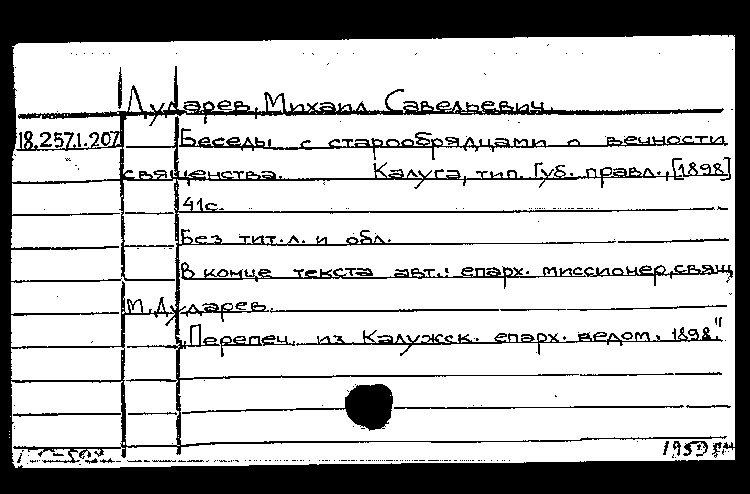 Дударев, Михаил Савельевич.
18.257.1.207 Беседы с старообрядцами о вечности
священства. Калуга, тип. Губ. правл., [1898]
41с.
Без тит.л. и обл.
В конце текста авт.: епарх. миссионер, свящ
М. Дударев.
„Перепеч. из Калужск. епарх. ведом. 1898."